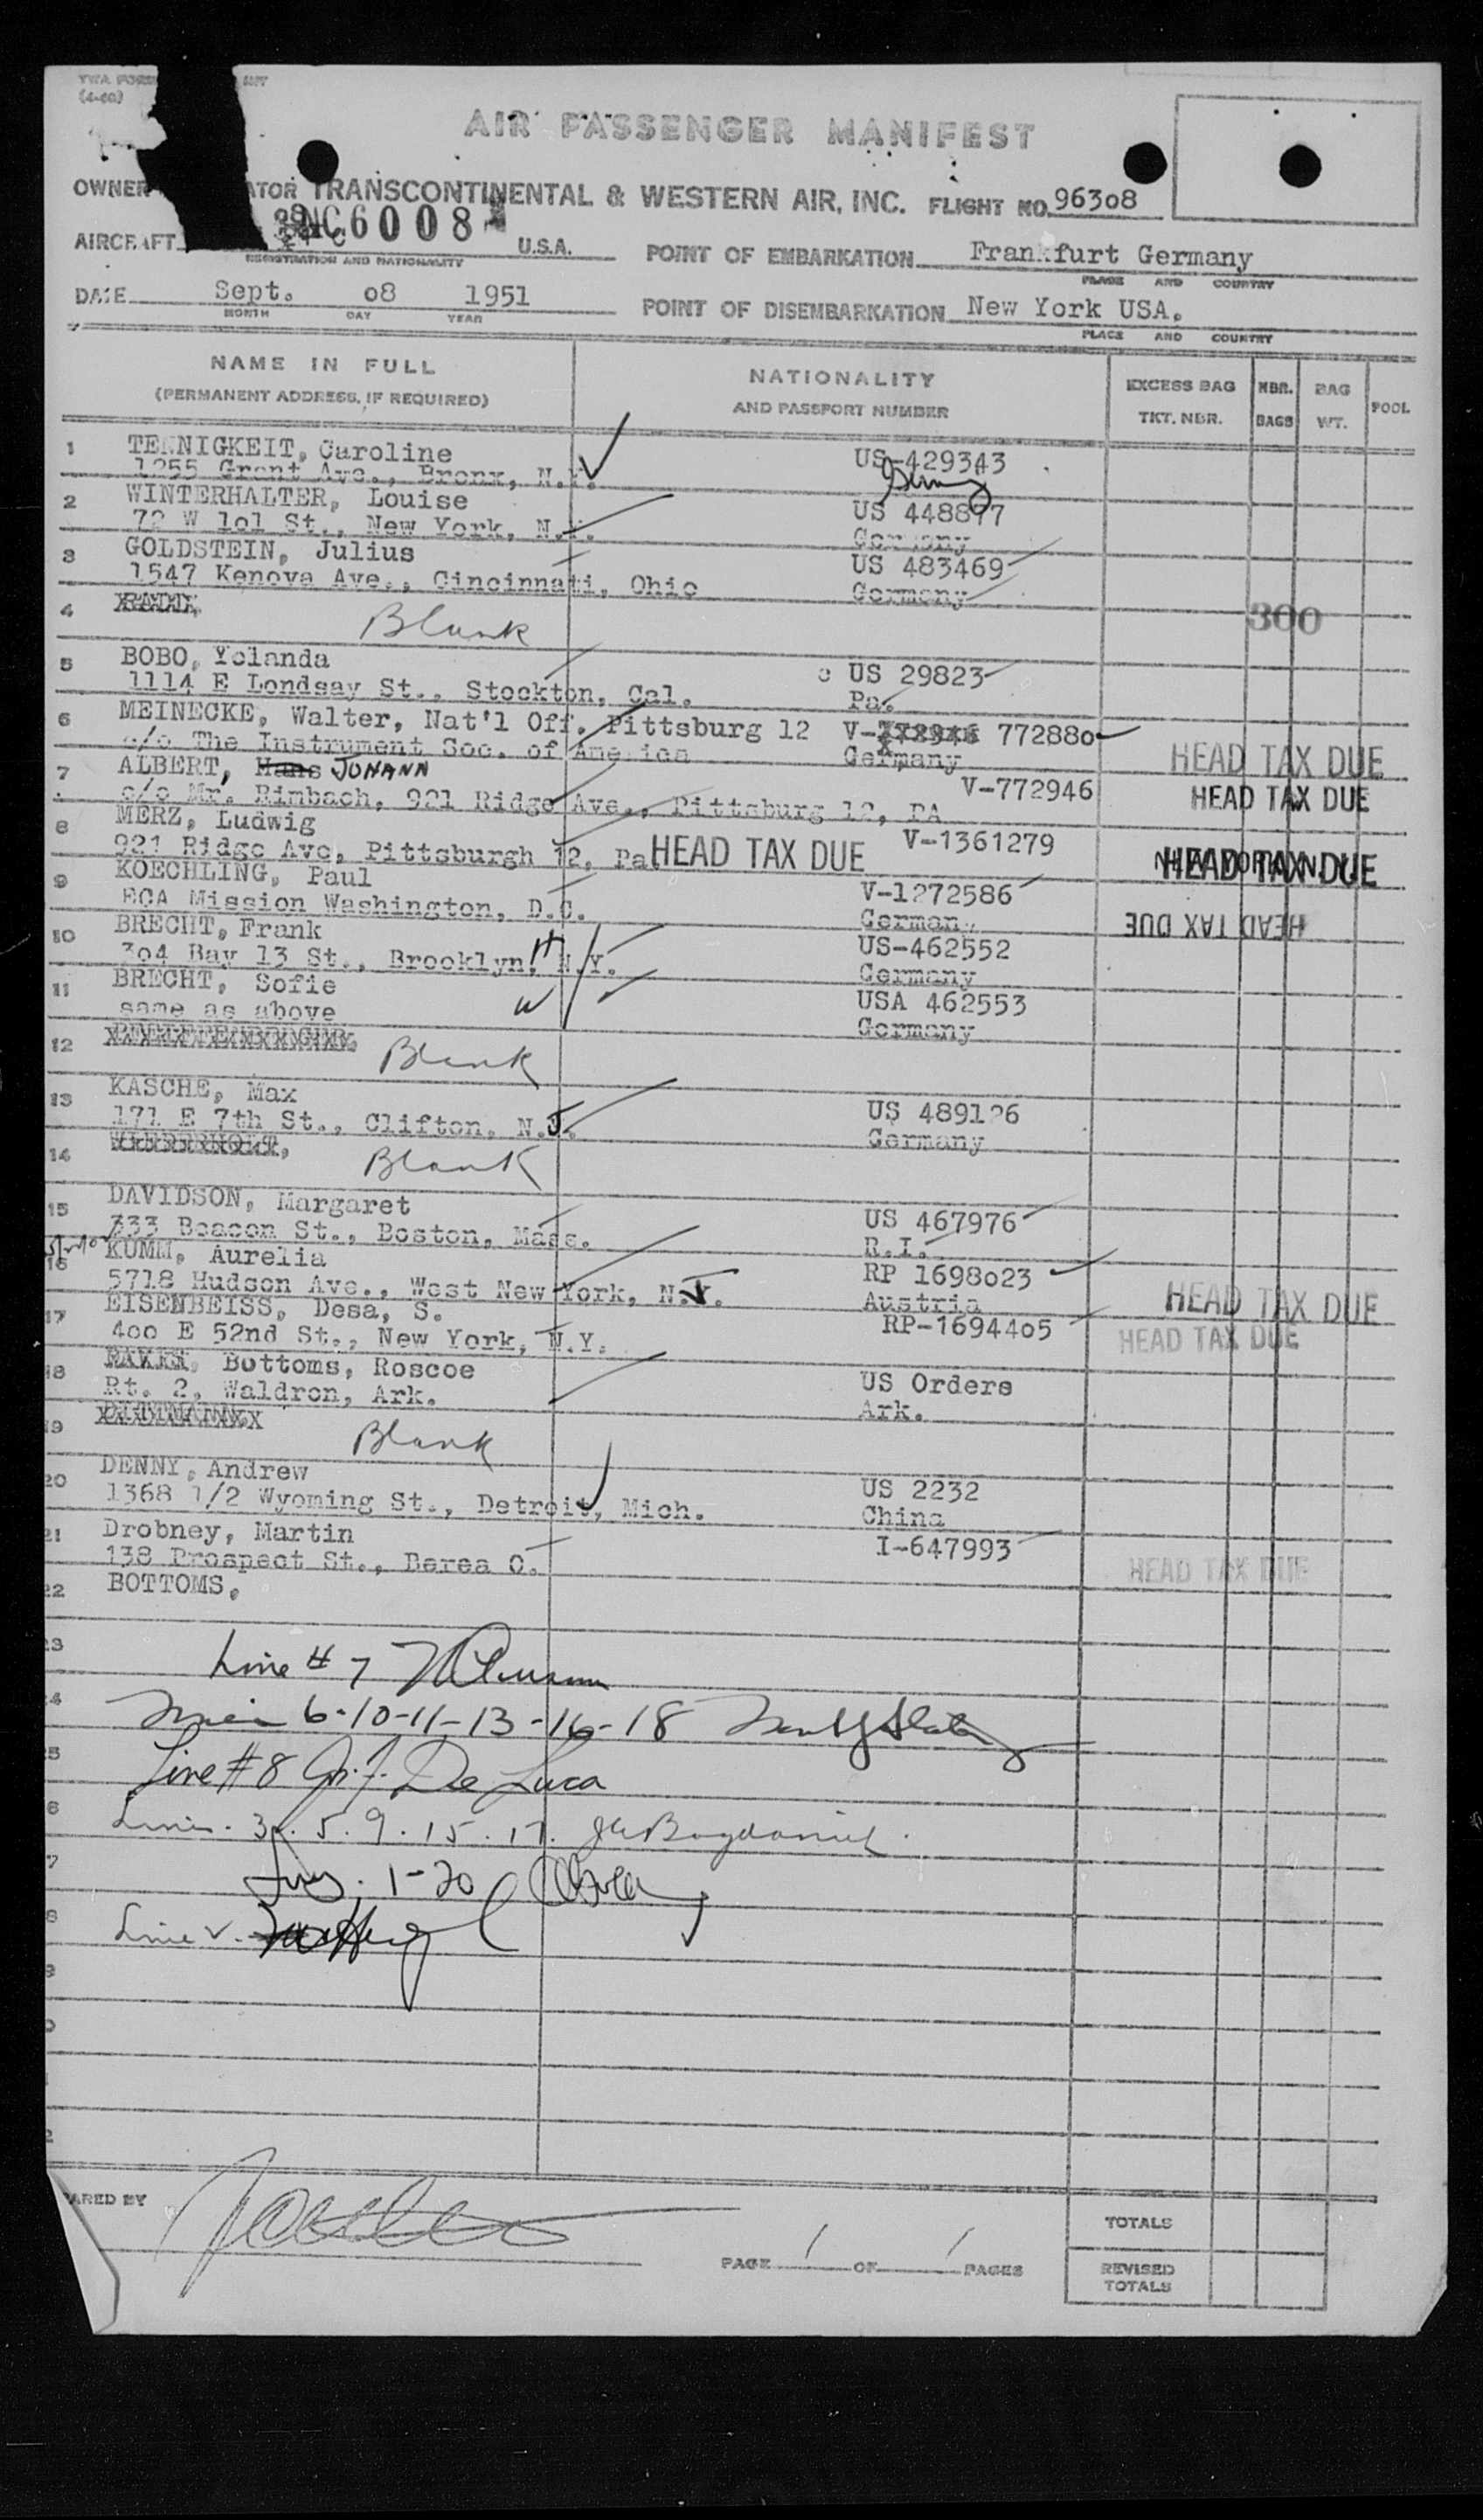 TWA FORM
(4-60)
AIR PASSENGER MANIFEST
OWNER ATOR TRANSCONTINENTAL & WESTERN AIR, INC. FLIGHT NO. 96308
AIRCRAFT NC6008 U.S.A. POINT OF EMBARKATION Frankfurt Germany
REGISTRATION AND NATIONALITY PLACE AND COUNTRY
DATE Sept. 08 1951 POINT OF DISEMBARKATION New York USA.
MONTH DAY YEAR PLACE AND COUNTRY
NAME IN FULL NATIONALITY EXCESS BAG NBR. BAG POOL
(PERMANENT ADDRESS, IF REQUIRED) AND PASSPORT NUMBER TKT. NBR. BAGS WT.
1 TENNIGKEIT, Caroline US-429343
1255 Grant Ave., Bronx, N.Y.
2 WINTERHALTER, Louise US 448877
72 W 101 St., New York, N.Y. Germany
3 GOLDSTEIN, Julius US 483469
1547 Kenova Ave., Cincinnati, Ohio Germany
4 Blank 300
5 BOBO, Yolanda c US 29823
1114 E Londsay St., Stockton, Cal. Pa.
6 MEINECKE, Walter, Nat'l Off. Pittsburg 12 V-772946 772880
c/o The Instrument Soc. of America Germany HEAD TAX DUE
7 ALBERT, Hans JOHANN V-772946 HEAD TAX DUE
c/o Mr. Rimbach, 921 Ridge Ave., Pittsburg 12, PA
8 MERZ, Ludwig V-1361279
921 Ridge Ave, Pittsburgh 12, Pa HEAD TAX DUE HEAD TAX DUE
9 KOECHLING, Paul V-1272586
ECA Mission Washington, D.C. German HEAD TAX DUE
10 BRECHT, Frank US-462552
304 Bay 13 St., Brooklyn, N.Y. H Germany
11 BRECHT, Sofie USA 462553
same as above W Germany
12 Blank
13 KASCHE, Max US 489126
171 E 7th St., Clifton, N.J. Germany
14 Blank
15 DAVIDSON, Margaret US 467976
333 Beacon St., Boston, Mass. R.I.
16 KUMM, Aurelia RP 1698023
5718 Hudson Ave., West New York, N.J. Austria HEAD TAX DUE
17 EISENBEISS, Desa, S. RP-1694405
400 E 52nd St., New York, N.Y. HEAD TAX DUE
18 Bottoms, Roscoe US Orders
Rt. 2, Waldron, Ark. Ark.
19 Blank
20 DENNY, Andrew US 2232
1368 1/2 Wyoming St., Detroit, Mich. China
21 Drobney, Martin I-647993
138 Prospect St., Berea O. HEAD TAX DUE
22 BOTTOMS,
Line # 7
6-10-11-13-16-18
Line #8 De Luca
3. 5. 9. 15. 17.
1-20
Line
ARED BY
TOTALS
PAGE 1 OF 1 PAGES
REVISED
TOTALS